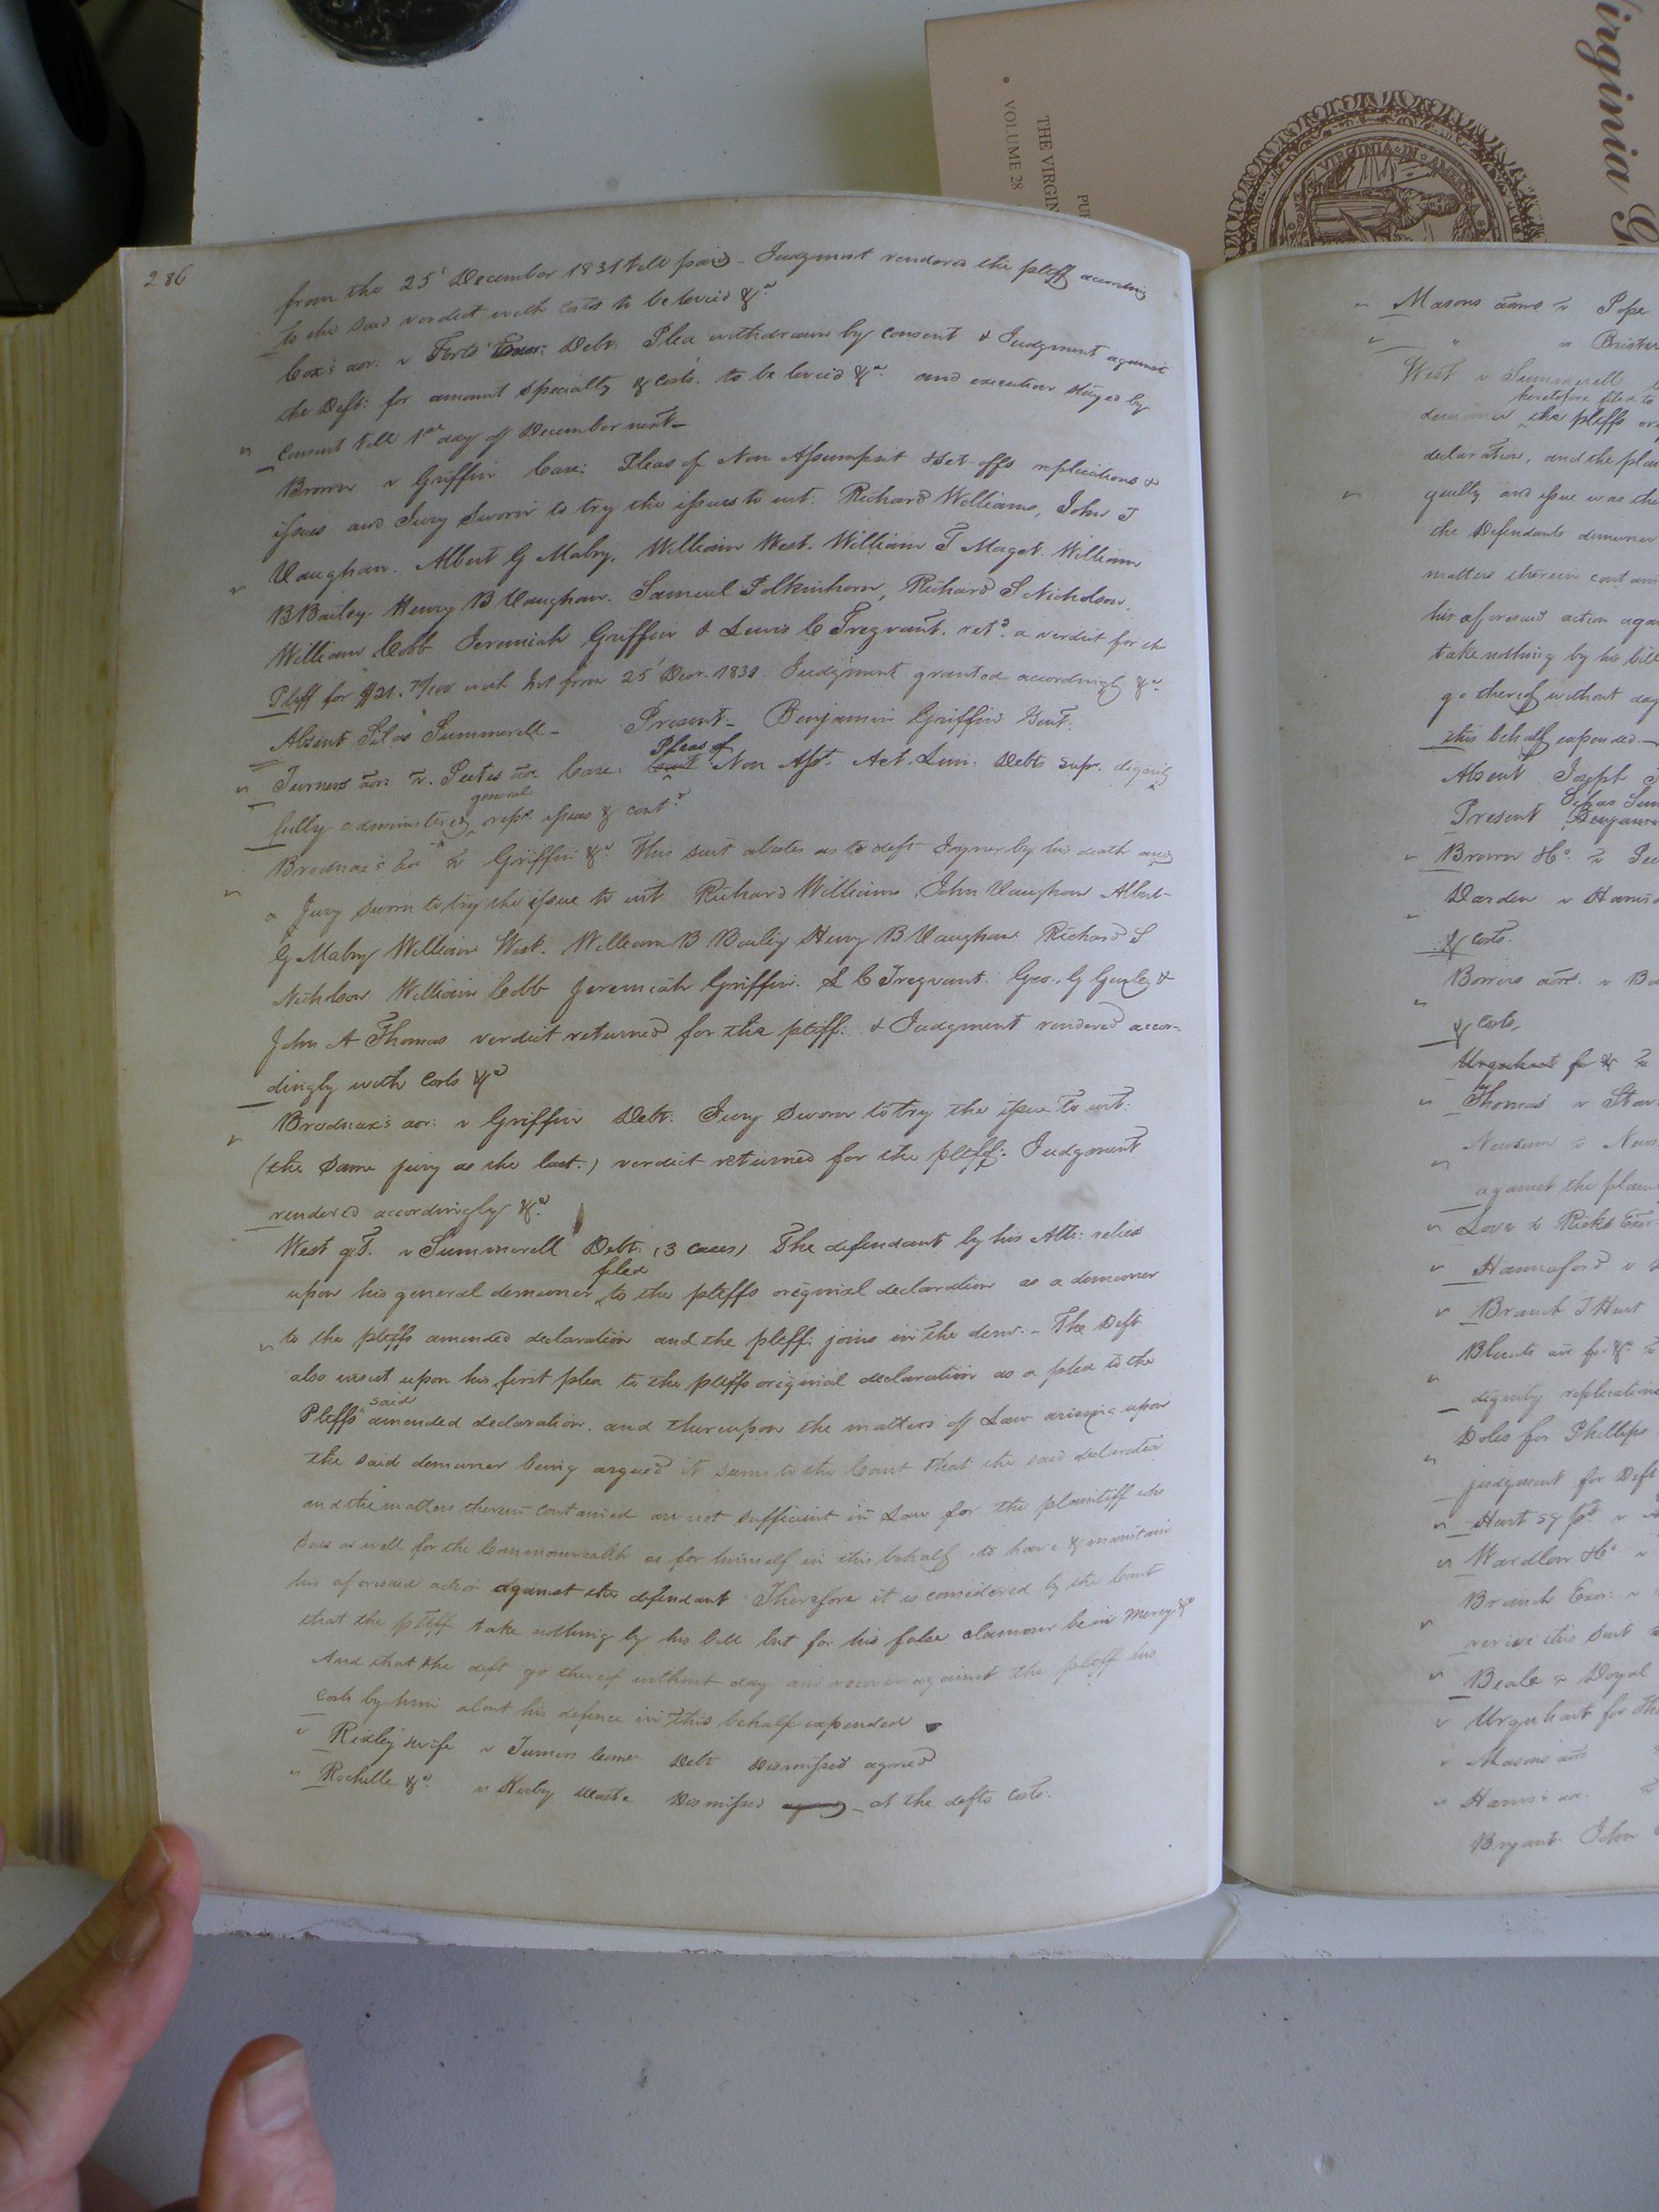 286
from the 25' December 1831 till paid - Judgment rendered the pltff according
to the said verdict with costs to be levied &c.
Cox's aor. v Forts' Exor: Debt. Plea withdrawn by consent & Judgment against
the Deft: for amount specialty & costs. to be levied &c. and execution stayed by
consent till 1st day of December next -
Brown v Griffin Case: Pleas of Non Assumpsit & set-offs replications &
issues and Jury sworn to try the issues to wit: Richard Williams, John T
Vaughan. Albert G Mabry. William West. William T Maget. William
B Bailey. Henry B Vaughan. Samuel Polkinhorn, Richard S Nicholson.
William Cobb Jeremiah Griffin & Lewis C Trezvant. retd. a verdict for the
Pltff for $21. 70/100 with Int from 25' Decr. 1831. Judgment granted accordingly &c.
Absent Silas Summerell - Present - Benjamin Griffin Gent.
Turners aor: v. Peetes aor. Case. Pleas of Non Asst. Act. Lim: Debts supr. dignity
fully administered, general repl. issues & contd.
Brodnax's aor v Griffin &c. This suit abates as to deft Joyner by his death and
a Jury sworn to try the issue to wit Richard Williams, John Vaughan Albert
G Mabry William West. William B Bailey Henry B Vaughan Richard S
Nicholson William Cobb Jeremiah Griffin. L C Trezvant. Geo. G Gurley &
John A Thomas verdict returned for the pltff: & Judgment rendered accor-
dingly with Costs &c
Brodnax's aor: v Griffin Debt. Jury sworn to try the issue to wit:
(the same jury as the last.) verdict returned for the pltff: Judgment
rendered accordingly &c.
West q T. v Summerell Debt. (3 cases) The defendant by his Atto: relies
upon his general demurrer filed to the pltffs original declaration as a demurrer
to the pltffs amended declaration and the pltff: joins in the demr. - The Deft
also insist upon his first plea to the pltffs original declaration as a plea to the
Pltffs said amended declaration. and thereupon the matters of Law arising upon
the said demurrer being argued it seems to the Court that the said declaration
and the matters therein contained are not sufficient in Law for the plaintiff who
sues as well for the Commonwealth as for himself in this behalf to have & maintain
his aforesaid action against the defendant Therefore it is considered by the Court
that the pltff take nothing by his bill but for his false clamour be in mercy &c
And that the deft go thereof without day and recover against the pltff his
costs by him about his defence in this behalf expended
Rixley & wife v Turners Debt Dismissed agreed
Rochelle &c. v Kirby Waste Dismissed at the defts costs.
Masons aors v Pope
" v
West v Summerell
heretofore filed to
the pltffs
declaration, and the
guilty and issue was
the Defendants demurrer
matters therein
his aforesaid action
take nothing by his bill
go thereof without day
this behalf expended. -
Absent Joseph
Silas
Present
Brown & Co. v
Darden v Harris
& costs.
aor. v
& costs,
Urquhart for &c v
Thomas v
Newsum v
against the
Love v Ricks Exor
Hannaford v
Branch T Hart
Blunts aor for &c. v
dignity replication
Doles for Phillips
judgment for Deft
Hart sg pt v
Wardlow & Co v
Branch Exor: v
revive this suit
Beale v Doyal
Urquhart for
Masons aors
Harris's aor.
Bryant. John
Virginia
THE VIRGIN
VOLUME 28
PU
VIRGINIA IN AMER